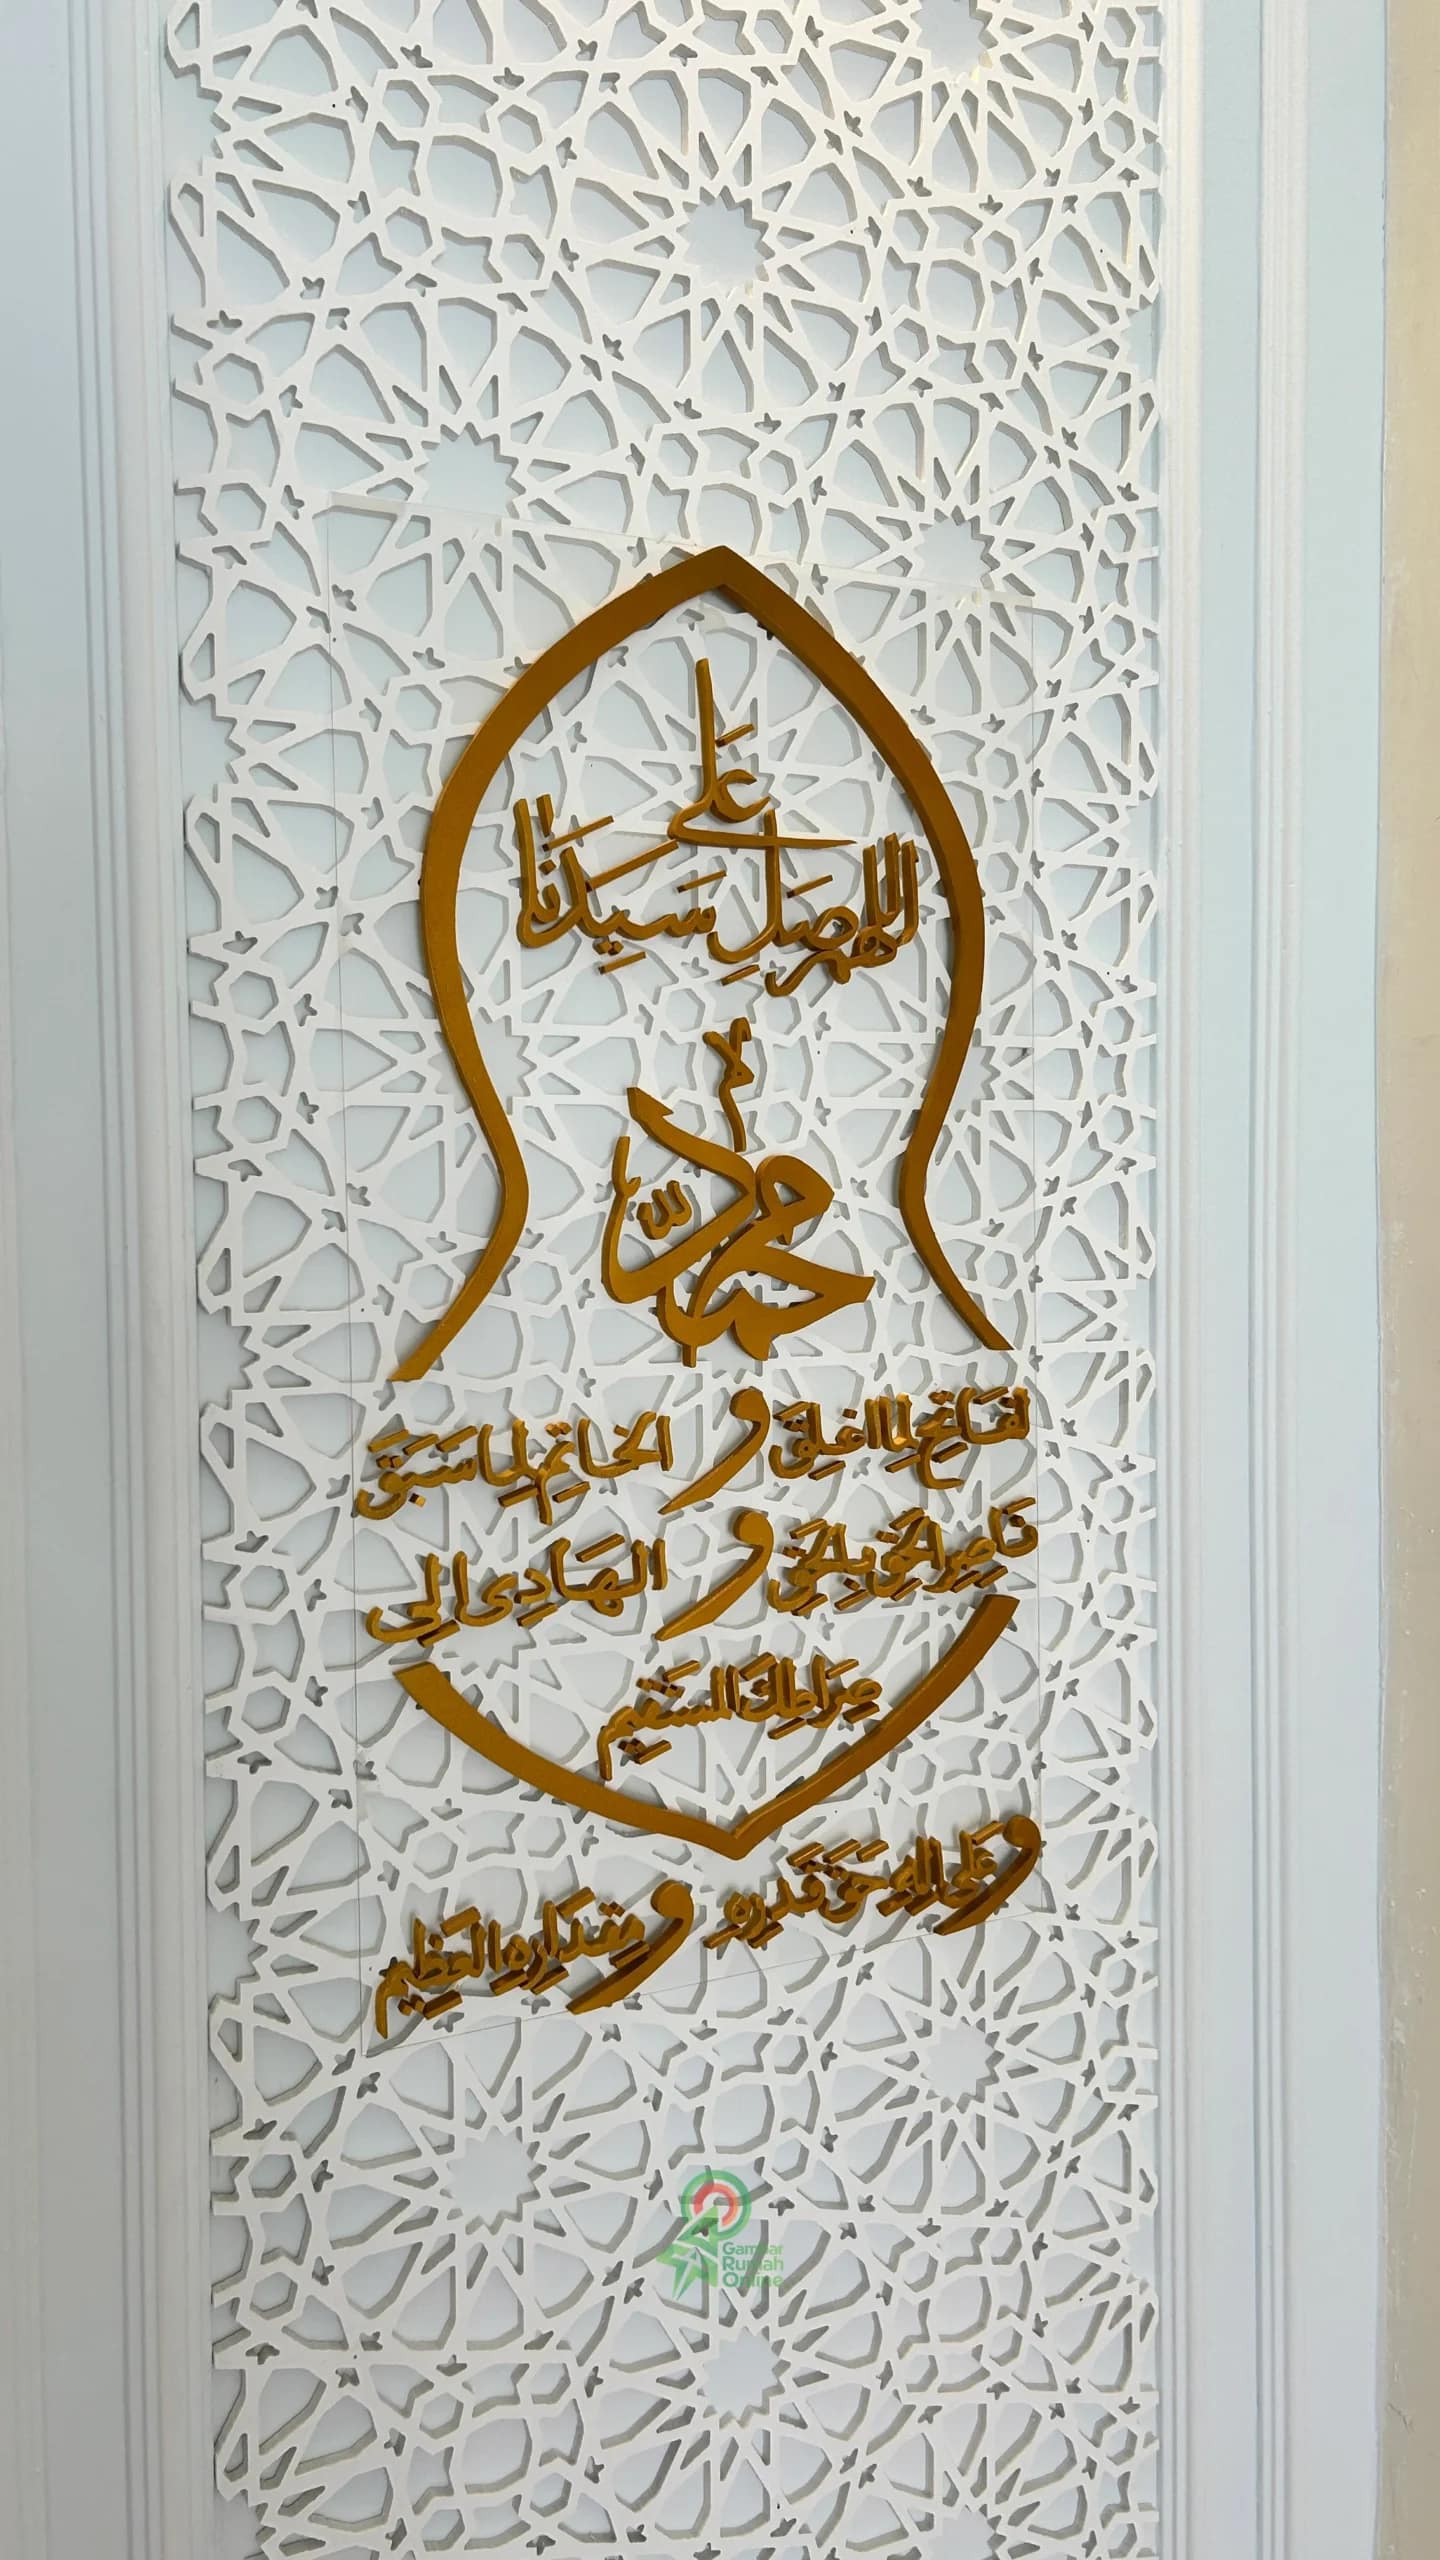 اللهم صَلِ عَلَى سَيِدَنَا
محمد ﷺ
لفَاتِحِ لِمَا اغلِقَ وَ الخَاتِمِ لِمَا سَبَقَ
نَاصِرِ الحَقِ بِالحَقِ وَ الهَادِى اِلى
صِرَاطِكَ المُسْتَقِيمِ
وَعَلى الِهِ حَقَ قَدرِهِ وَ مِقدَارِهِ العَظِيمِ
Gambar
Rumah
Online